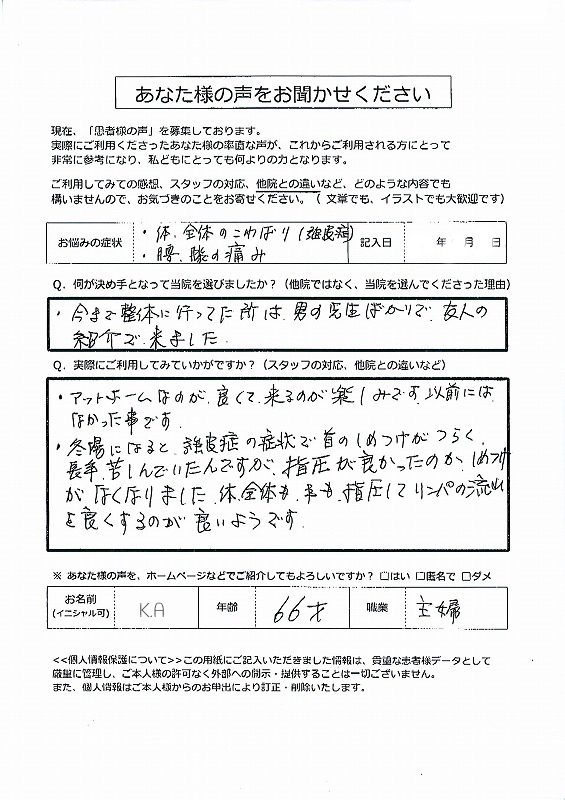 あなた様の声をお聞かせください
現在、「患者様の声」を募集しております。
実際にご利用くださったあなた様の率直な声が、これからご利用される方にとって
非常に参考になり、私どもにとっても何よりの力となります。
ご利用してみての感想、スタッフの対応、他院との違いなど、どのような内容でも
構いませんので、お気づきのことをお寄せください。（ 文章でも、イラストでも大歓迎です）
お悩みの症状
・体、全体のこわばり(強皮症)
・腰、膝の痛み
記入日 年 月 日
Q．何が決め手となって当院を選びましたか？（他院ではなく、当院を選んでくださった理由）
・今まで整体に行ってた所は、男の先生ばかりで、友人の
紹介で来ました.
Q．実際にご利用してみていかがですか？（スタッフの対応、他院との違いなど）
・アットホームなのが、良くて、来るのが楽しみです、以前には
なかった事です.
・冬場になると、強皮症の症状で首のしめつけがつらく、
長年、苦しんでいたんですが、指圧が良かったのか、しめつけ
がなくなりました.体、全体も、手も、指圧してリンパの流れ
を良くするのが良いようです.
※ あなた様の声を、ホームページなどでご紹介してもよろしいですか？ □はい □匿名で □ダメ
お名前 K.A 年齢 66才 職業 主婦
(イニシャル可)
<<個人情報保護について>>この用紙にご記入いただきました情報は、貴重な患者様データとして
厳重に管理し、ご本人様の許可なく外部への開示・提供することは一切ございません。
また、個人情報はご本人様からのお申出により訂正・削除いたします。